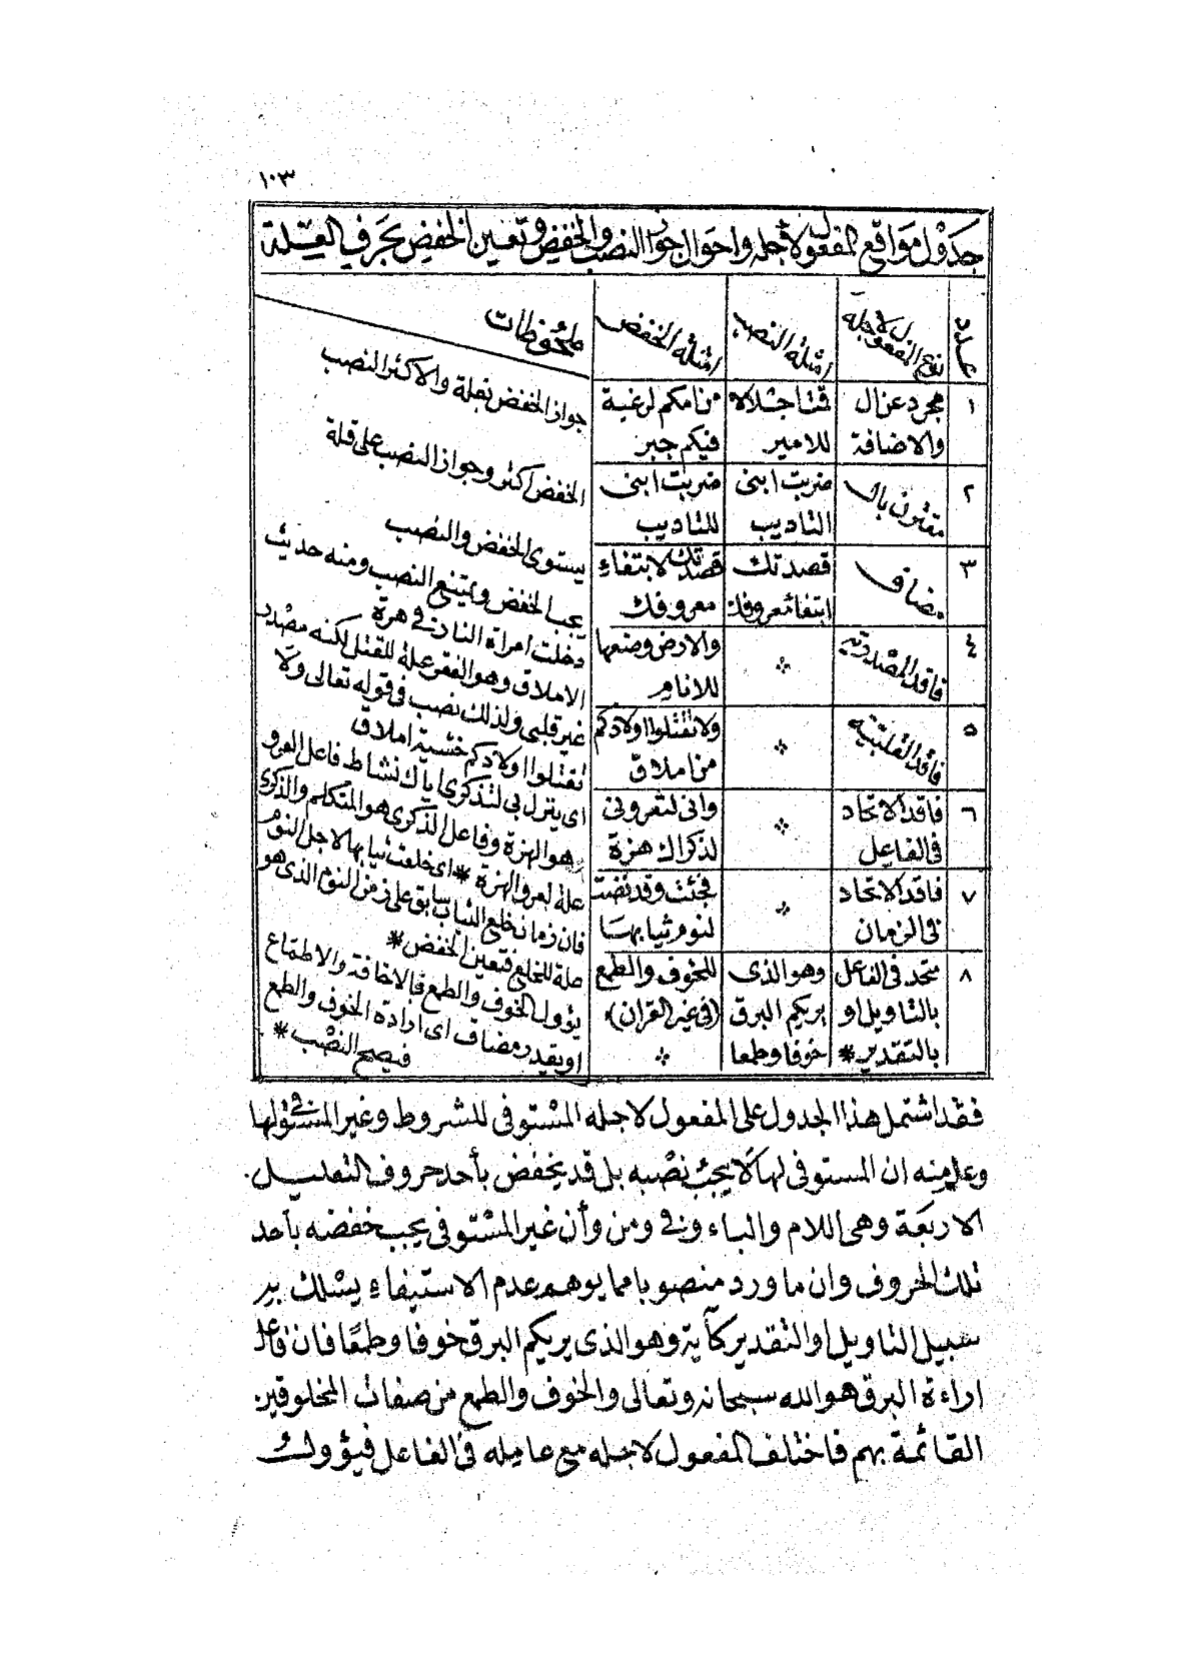 ١٠٣
جدول مواقع المفعول لأجله واحوال جواز النصب والخفض وتعين الخفض بحرف العلة
عدد
نوع المفعول لاجله
امثلة النصب
امثلة الخفض
ملحوظات
١
مجرد عن ال
والاضافة
قمت اجلالا
للامير
من امكم لرغبة
فيكم جبر
جواز الخفض بقلة والاكثر النصب
٢
مقترن بال
ضربت ابنى
التاديب
ضربت ابنى
للتاديب
الخفض اكثر وجواز النصب على قلة
٣
مضاف
قصدتك
ابتغاء معروفك
قصدتك لابتغاء
معروفك
يستوى الخفض والنصب
٤
فاقد المصدرية
والارض وضعها
للانام
يجب الخفض ويمتنع النصب ومنه حديث
دخلت امراة النار فى هرة
٥
فاقد القلبية
ولا تقتلوا اولادكم
من املاق
الاملاق وهو الفقر علة للقتل لكنه مصدر
غير قلبى ولذلك نصب فى قوله تعالى ولا
تقتلوا اولادكم خشية املاق
٦
فاقد الاتحاد
فى الفاعل
وانى لتعرونى
لذكراك هزة
اى ينزل بى لتذكرى اياك نشاط فاعل العرو
هو الهزة وفاعل الذكرى هو المتكلم والذكرى
علة لعرو الهزة *
٧
فاقد الاتحاد
فى الزمان
فجئت وقد نضت
لنوم ثيابها
اى خلعت ثيابها لاجل النوم
فان زمان خلع الثياب سابق على زمن النوم الذى هو
علة للخلع فتعين الخفض *
٨
متحد فى الفاعل
بالتاويل او
بالتقدير *
وهو الذى
يريكم البرق
خوفا وطمعا
للخوف والطمع
(فى غير القران)
يؤول الخوف والطمع بالاخافة والاطماع
او يقدر مضاف اى ارادة الخوف والطمع
فيصح النصب *
فقد اشتمل هذا الجدول على المفعول لاجله المستوفى للشروط وغير المستوفى لها
وعلم منه ان المستوفى لها لا يجب نصبه بل قد يخفض بأحد حروف التعليل
الاربعة وهى اللام والباء وفى ومن وأن غير المستوفى يجب خفضه بأحد
تلك الحروف وان ما ورد منصوبا مما يوهم عدم الاستيفاء يسلك به
سبيل التاويل او التقدير كآية وهو الذى يريكم البرق خوفا وطمعًا فان فاعل
اراءة البرق هو الله سبحانه وتعالى والخوف والطمع من صفات المخلوقين
القائمة بهم فاختلف المفعول لاجله مع عامله فى الفاعل فيؤول